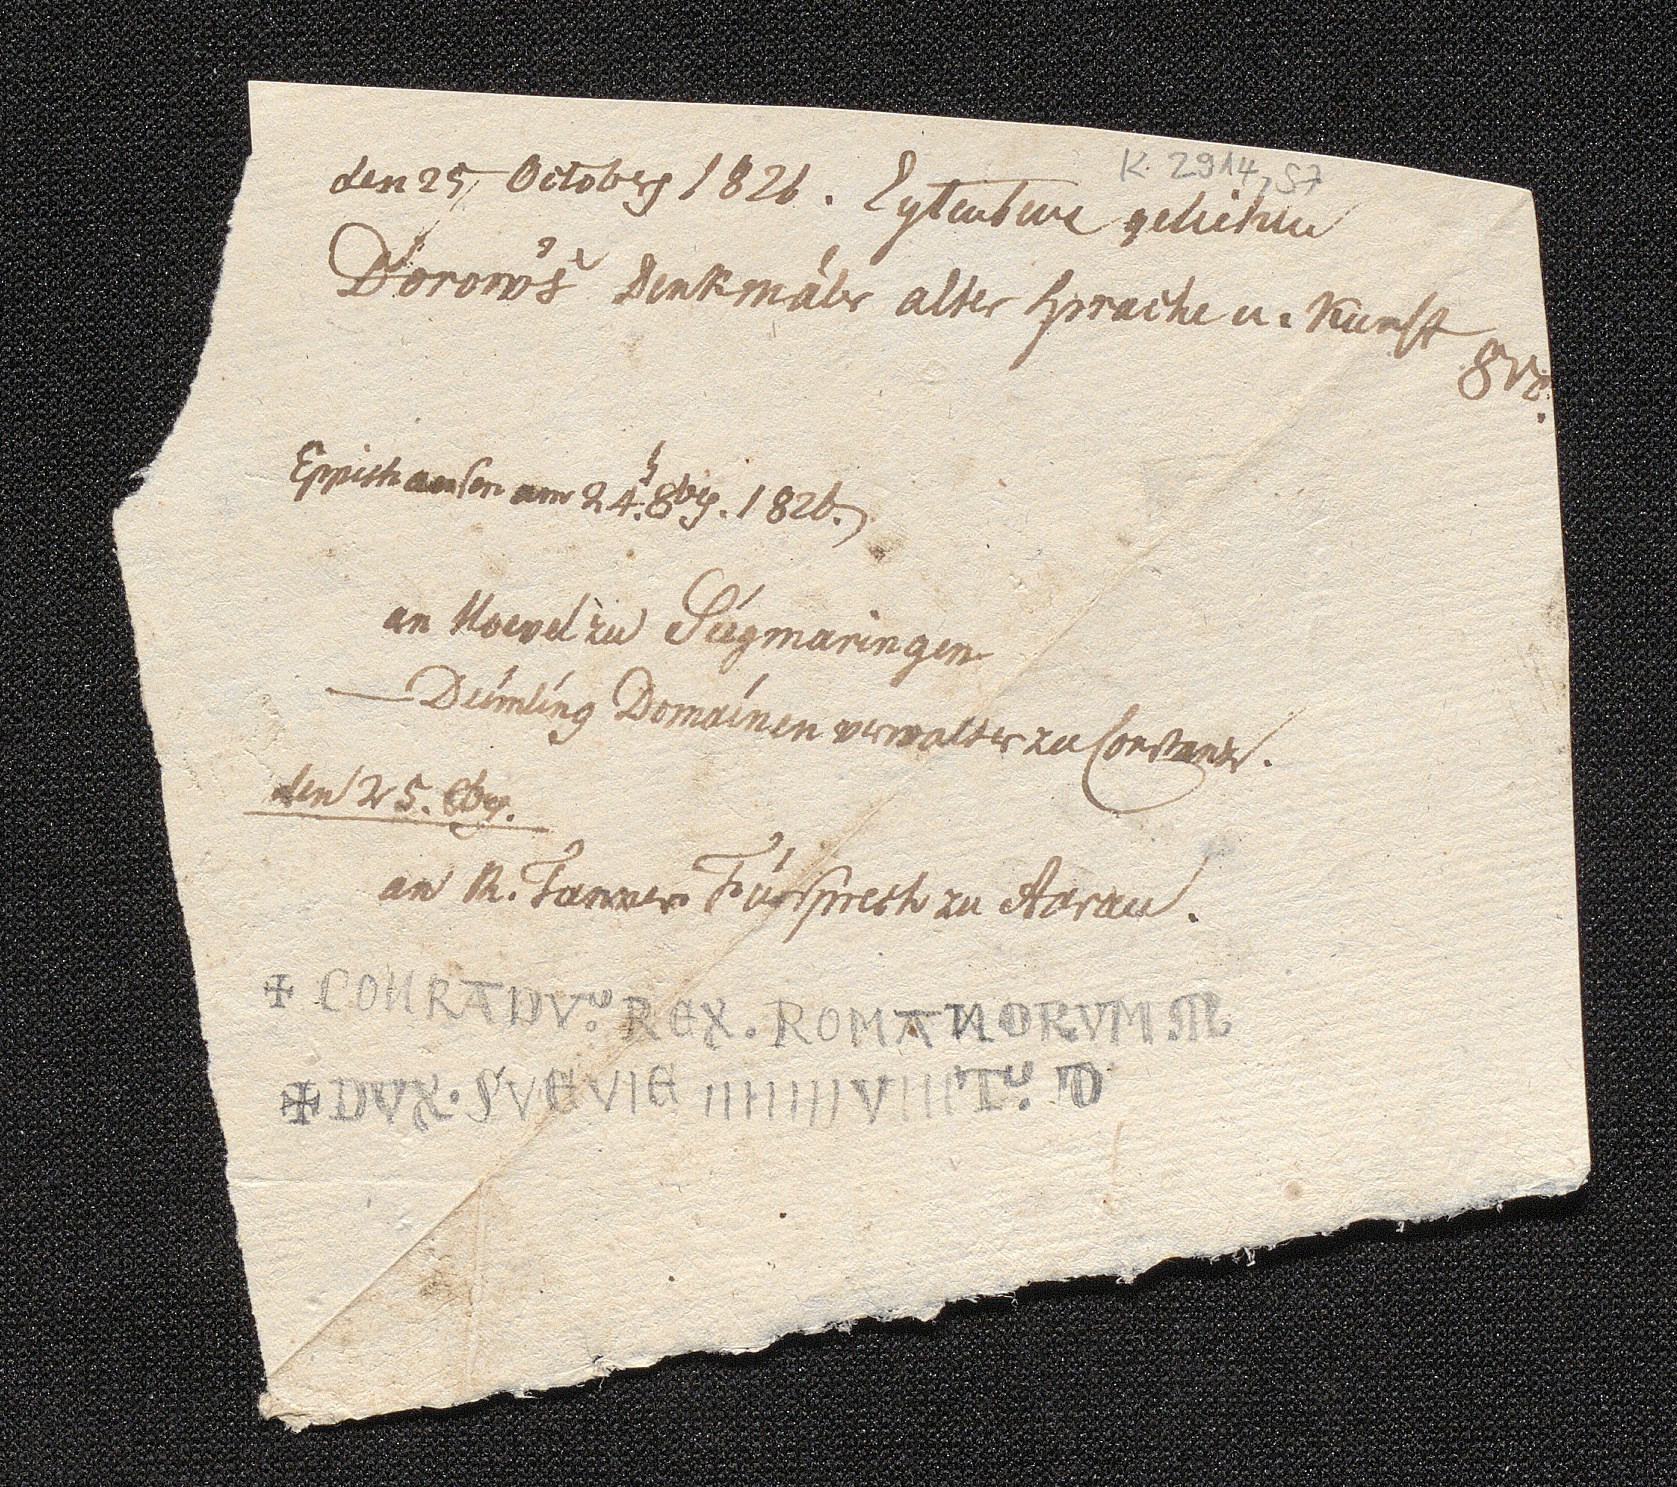 K. 2914, 57
den 25 October 1826. geliehen
Dorow's Denkmäler alter Sprache u. Kunst
8vo.
Eppishausen am 24. 8br. 1826.
an zu Siegmaringen
— Deimling Domainenverwalter zu Constanz.
den 25. 8br.
an R. Tanner Fürsprech zu Aarau.
+ CONRADVꝰ. REX. ROMANORVM
+ DVX. SVEVIE IIIIIIIIVIII Tꝰ.